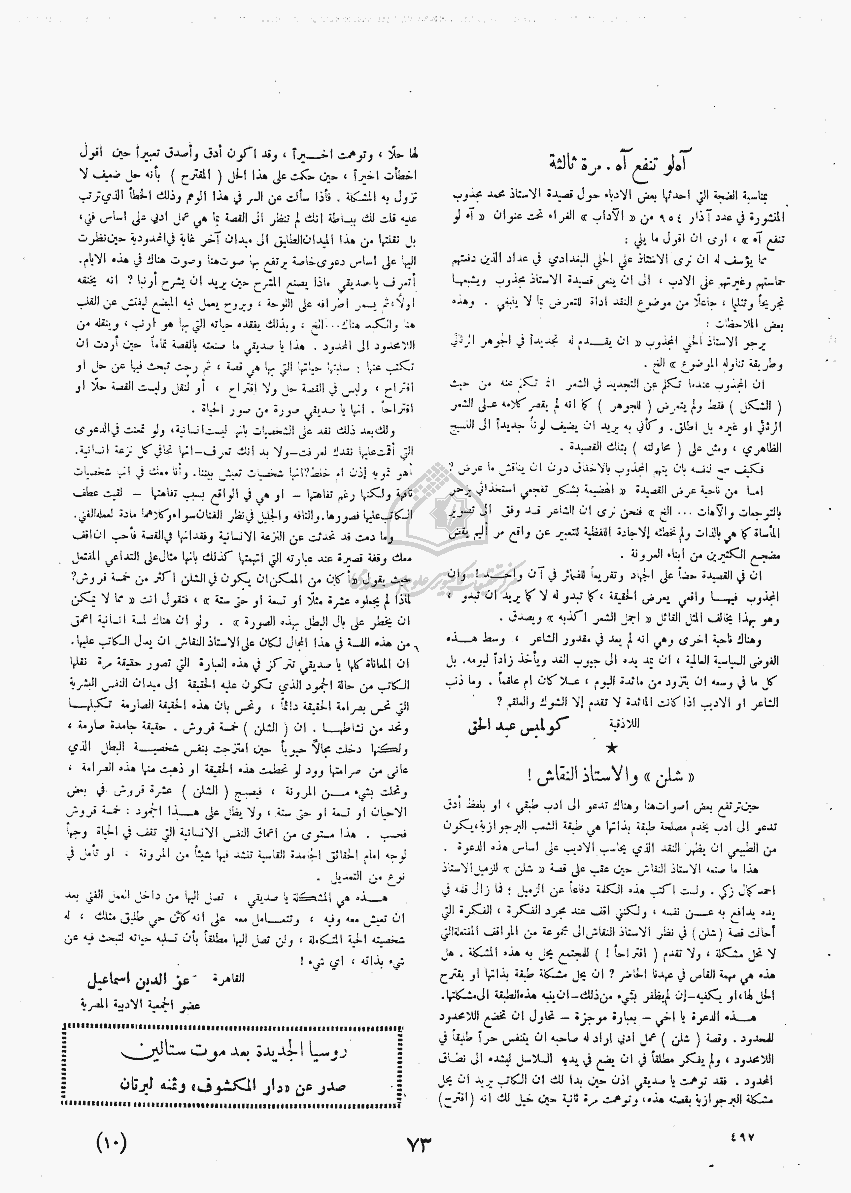 آه لو تنفع آه . مرة ثالثة
بمناسبة الضجة التي احدثها بعض الادباء حول قصيدة الاستاذ محمد مجذوب
المنشورة في عدد آذار ٩٥٤ من « الآداب » الغراء تحت عنوان « آه لو
تنفع آه » ، ارى ان اقول ما يلي :
مما يؤسف له ان نرى الاستاذ علي الحلي البغدادي في عداد الذين دفعتهم
حماستهم وغيرتهم على الادب ، الى ان ينعى قصيدة الاستاذ مجذوب ويشبعها
تجريحاً وتثلياً ، جاعلًا من موضوع النقد اداة للتعرض بما لا ينبغي . وهذه
بعض الملاحظات :
يرجو الاستاذ الحلي المجذوب « ان يقدم له تجديداً في الجوهر الرثائي
وطريقة تناوله الموضوع » الخ .
ان المجذوب عندما تكلم عن التجديد في الشعر انما تكلم عنه من حيث
( الشكل ) فقط ولم يتعرض ( للجوهر ) كما انه لم يقصر كلامه على الشعر
الرثائي او غيره بل اطلق . وكأني به يريد ان يضيف لوناً جديداً الى النسج
الظاهري ، ومثل على ( محاولته ) بتلك القصيدة .
فكيف سمح لنفسه بان يتهم المجذوب بالاخفاق دون ان يناقش ما عرض ؟
اما من ناحية عرض القصيدة « الهضيمة بشكل تفجعي استخذائي يزخر
بالتوجعات والآهات ... الخ » فنحن نرى ان الشاعر قد وفق الى تصوير
المأساة كما هي بالذات ولم تخطئه الاجادة اللفظية للتعبير عن واقع مر اليم يقض
مضجع الكثيرين من ابناء العروبة .
ان في القصيدة حضاً على الجهاد وتقريعاً للفاتر في آن واحد ! وان
المجذوب فيها واقعي يعرض الحقيقة ، كما تبدو له لا كما يريد ان تبدو ،
وهو بهذا يخالف المثل القائل « اجمل الشعر اكذبه » ويصدق .
وهناك ناحية اخرى وهي انه لم يعد في مقدور الشاعر ، وسط هذه
الفوضى السياسية العالمية ، ان يمد يده الى جيوب الغد ويأخذ زاداً ليومه . بل
كل ما في وسعه ان يتزود من مائدة اليوم ، عسلا كان ام علقماً . وما ذنب
الشاعر او الاديب اذا كانت المائدة لا تقدم إلا الشوك والعلقم ؟
اللاذقية كولمبس عبد الحق
★
« شلن » والاستاذ النقاش !
حين ترتفع بعض اصوات هنا وهناك تدعو الى ادب طبقي ، او بلفظ أدق
تدعو الى ادب يخدم مصلحة طبقة بذاتها هي طبقة الشعب البرجوازية، يكون
من الطبيعي ان يظهر النقد الذي يحاسب الاديب على اساس هذه الدعوة .
هذا ما صنعه الاستاذ النقاش حين عقب على قصة « شلن » للزميل الاستاذ
احمد كمال زكي . ولست اكتب هذه الكلمة دفاعاً عن الزميل ؛ فما زال قلمه في
يده يدافع به عن نفسه ، ولكنني اقف عند مجرد الفكرة ، الفكرة التي
أحالت قصة (شلن) في نظر الاستاذ النقاش الى مجموعة من المواقف المفتعلة التي
لا تحل مشكلة ، ولا تقدم ( اقتراحاً ! ) للمجتمع يحل به هذه المشكلة . هل
هذه هي مهمة القاص في عهدنا الحاضر ؟ ان يحل مشكلة طبقة بذاتها او يقترح
الحل لها، او يكفيه-إن لم يظفر بشيء من ذلك-ان ينبه هذه الطبقة الى مشكلتها.
هذه الدعوة يا اخي – بعبارة موجزة – تحاول ان تخضع اللامحدود
للمحدود . وقصة ( شلن ) عمل أدبي اراد له صاحبه ان يتنفس حراً طليقاً في
اللامحدود ، ولم يفكر مطلقاً في ان يضع في يديه السلاسل ليشده الى نطاق
المحدود . فقد توهمت يا صديقي اذن حين بدا لك ان الكاتب يريد ان يحل
مشكلة البرجوازية بقصته هذه، وتوهمت مرة ثانية حين خيل لك انه (اقترح)
لها حلًا ، وتوهمت اخيراً ، وقد اكون أدق وأصدق تعبيراً حين اقول
اخطأت اخيراً ، حين حكمت على هذا الحل ( المقترح ) بأنه حل ضعيف لا
تزول به المشكلة . فاذا سألت عن السر في هذا الوهم وذلك الخطأ الذي ترتب
عليه قلت لك ببساطة انك لم تنظر الى القصة بما هي عمل ادبي على اساس فني،
بل نقلتها من هذا الميدان الطليق الى ميدان آخر غاية في المحدودية حين نظرت
اليها على اساس دعوى خاصة يرتفع بها صوت هنا وصوت هناك في هذه الايام.
أتعرف يا صديقي ماذا يصنع المشرح حين يريد ان يشرح أرنباً ؟ انه يخنقه
اولًا؛ ثم يسمر اطرافه على اللوحة ، ويروح يعمل فيه المبضع ليفتش عن القلب
هنا والكبد هناك...الخ ، وبذلك يفقده حياته التي بها هو أرنب ، وينقله من
اللامحدود الى المحدود . هذا يا صديقي ما صنعته بالقصة تماماً حين أردت ان
تكتب عنها : سلبتها حياتها التي بها هي قصة ، ثم رحت تبحث فيها عن حل او
اقتراح ، وليس في القصة حل ولا اقتراح ، أو لنقل وليست القصة حلًا او
اقتراحاً . انها يا صديقي صورة من صور الحياة .
ولك بعد ذلك نقد على الشخصيات بأنها ليست انسانية، ولو تمعنت في الدعوى
التي أقمت عليها نقدك لعرفت-ولا بد انك تعرف-انها تجافي كل نزعة انسانية.
أهو تمويه إذن ام خلط؟ انها شخصيات تعيش بيننا. وأنا معك في انها شخصيات
تافهة ولكنها رغم تفاهتها – او هي في الواقع بسبب تفاهتها – لقيت عطف
الكاتب عليها فصورها. والتافه والجليل في نظر الفنان سواء وكلاهما مادة لعمله الفني.
وما دمت قد تحدثت عن النزعة الانسانية وفقدانها في القصة فأحب ان اقف
معك وقفة قصيرة عند عبارته التي اتهمتها كذلك بأنها مثال على التداعي المفتعل
حيث يقول «أكان من الممكن ان يكون في الشلن اكثر من خمسة قروش؟
لماذا لم يجعلوه عشرة مثلًا او تسعة او حتى ستة » ، فتقول انت « مما لا يمكن
ان يخطر على بال البطل بهذه الصورة » . ولو ان هناك لمسة انسانية اعمق
من هذه اللمسة في هذا المجال لكان على الاستاذ النقاش ان يدل الكاتب عليها.
ان المعاناة كلها يا صديقي تتركز في هذه العبارة التي تصور حقيقة مرة نقلها
الكاتب من حالة الجمود الذي تكون عليه الحقيقة الى ميدان النفس البشرية
التي تحس بصرامة الحقيقة دائماً ، وتحس بان هذه الحقيقة الصارمة تكبلها
وتحد من نشاطها . ان ( الشلن ) خمسة قروش . حقيقة جامدة صارمة ،
ولكنها دخلت مجالًا حيوياً حين امتزجت بنفس شخصية البطل الذي
عانى من صرامتها وود لو تحطمت هذه الحقيقة او ذهبت منها هذه الصرامة ،
وتحلت بشيء من المرونة ، فيصبح ( الشلن ) عشرة قروش في بعض
الاحيان او تسعة او حتى ستة ، ولا يظل على هذا الجمود : خمسة قروش
فحسب . هذا مستوى من اعماق النفس الانسانية التي تقف في الحياة وجهاً
لوجه امام الحقائق الجامدة القاسية تنشد فيها شيئاً من المرونة ، او تأمل في
نوع من التعديل .
هذه هي المشكلة يا صديقي ، تصل اليها من داخل العمل الفني بعد
ان تعيش معه وفيه ، وتتعامل معه على انه كائن حي طليق مثلك ، له
شخصيته الحية المتكاملة ، ولن تصل اليها مطلقاً بأن تسلبه حياته لتبحث فيه عن
شيء بذاته ، أي شيء !
القاهرة عز الدين اسماعيل
عضو الجمعية الادبية المصرية
روسيا الجديدة بعد موت ستالين
صدر عن «دار المكشوف» وثمنه ليرتان
٤٩٧
٧٣
(١٠)